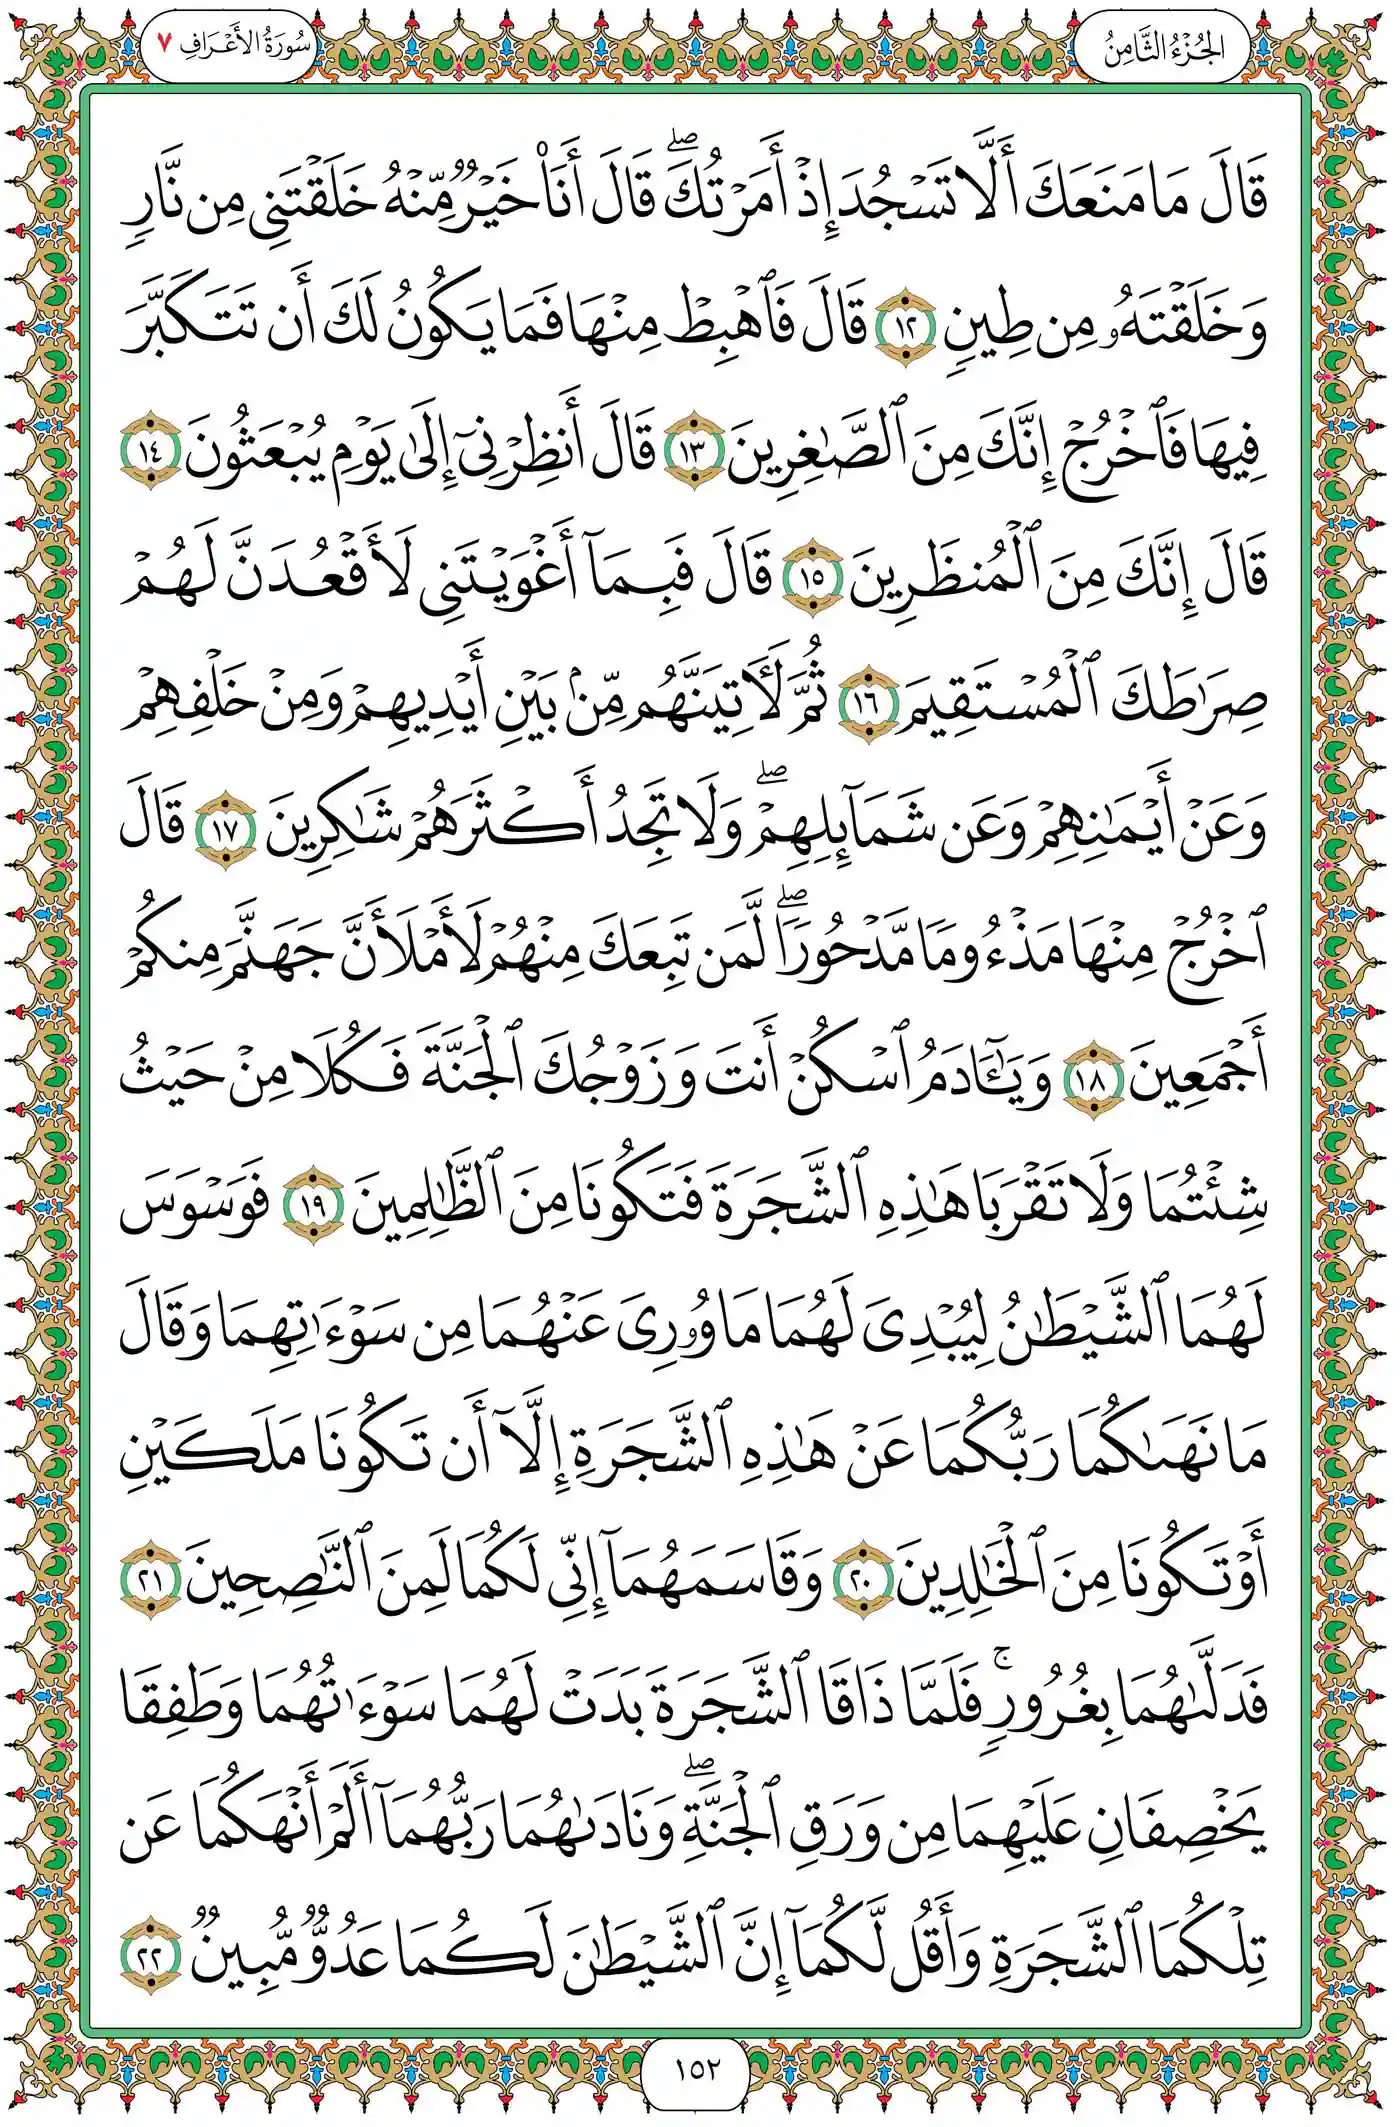 الجُزْءُ الثَّامِنُ
سُورَةُ الأَعْرَافِ ٧
قَالَ مَا مَنَعَكَ أَلَّا تَسْجُدَ إِذْ أَمَرْتُكَ ۖ قَالَ أَنَا۠ خَيْرٌ مِّنْهُ خَلَقْتَنِى مِن نَّارٍ
وَخَلَقْتَهُۥ مِن طِينٍ ١٢ قَالَ فَٱهْبِطْ مِنْهَا فَمَا يَكُونُ لَكَ أَن تَتَكَبَّرَ
فِيهَا فَٱخْرُجْ إِنَّكَ مِنَ ٱلصَّٰغِرِينَ ١٣ قَالَ أَنظِرْنِىٓ إِلَىٰ يَوْمِ يُبْعَثُونَ ١٤
قَالَ إِنَّكَ مِنَ ٱلْمُنظَرِينَ ١٥ قَالَ فَبِمَآ أَغْوَيْتَنِى لَأَقْعُدَنَّ لَهُمْ
صِرَٰطَكَ ٱلْمُسْتَقِيمَ ١٦ ثُمَّ لَأَتِيَنَّهُم مِّنۢ بَيْنِ أَيْدِيهِمْ وَمِنْ خَلْفِهِمْ
وَعَنْ أَيْمَٰنِهِمْ وَعَن شَمَآئِلِهِمْ ۖ وَلَا تَجِدُ أَكْثَرَهُمْ شَٰكِرِينَ ١٧ قَالَ
ٱخْرُجْ مِنْهَا مَذْءُومًا مَّدْحُورًا ۖ لَّمَن تَبِعَكَ مِنْهُمْ لَأَمْلَأَنَّ جَهَنَّمَ مِنكُمْ
أَجْمَعِينَ ١٨ وَيَٰٓـَٔادَمُ ٱسْكُنْ أَنتَ وَزَوْجُكَ ٱلْجَنَّةَ فَكُلَا مِنْ حَيْثُ
شِئْتُمَا وَلَا تَقْرَبَا هَٰذِهِ ٱلشَّجَرَةَ فَتَكُونَا مِنَ ٱلظَّٰلِمِينَ ١٩ فَوَسْوَسَ
لَهُمَا ٱلشَّيْطَٰنُ لِيُبْدِىَ لَهُمَا مَا وُۥرِىَ عَنْهُمَا مِن سَوْءَٰتِهِمَا وَقَالَ
مَا نَهَىٰكُمَا رَبُّكُمَا عَنْ هَٰذِهِ ٱلشَّجَرَةِ إِلَّآ أَن تَكُونَا مَلَكَيْنِ
أَوْ تَكُونَا مِنَ ٱلْخَٰلِدِينَ ٢٠ وَقَاسَمَهُمَآ إِنِّى لَكُمَا لَمِنَ ٱلنَّٰصِحِينَ ٢١
فَدَلَّىٰهُمَا بِغُرُورٍ ۚ فَلَمَّا ذَاقَا ٱلشَّجَرَةَ بَدَتْ لَهُمَا سَوْءَٰتُهُمَا وَطَفِقَا
يَخْصِفَانِ عَلَيْهِمَا مِن وَرَقِ ٱلْجَنَّةِ ۖ وَنَادَىٰهُمَا رَبُّهُمَآ أَلَمْ أَنْهَكُمَا عَن
تِلْكُمَا ٱلشَّجَرَةِ وَأَقُل لَّكُمَآ إِنَّ ٱلشَّيْطَٰنَ لَكُمَا عَدُوٌّ مُّبِينٌ ٢٢
١٥٢